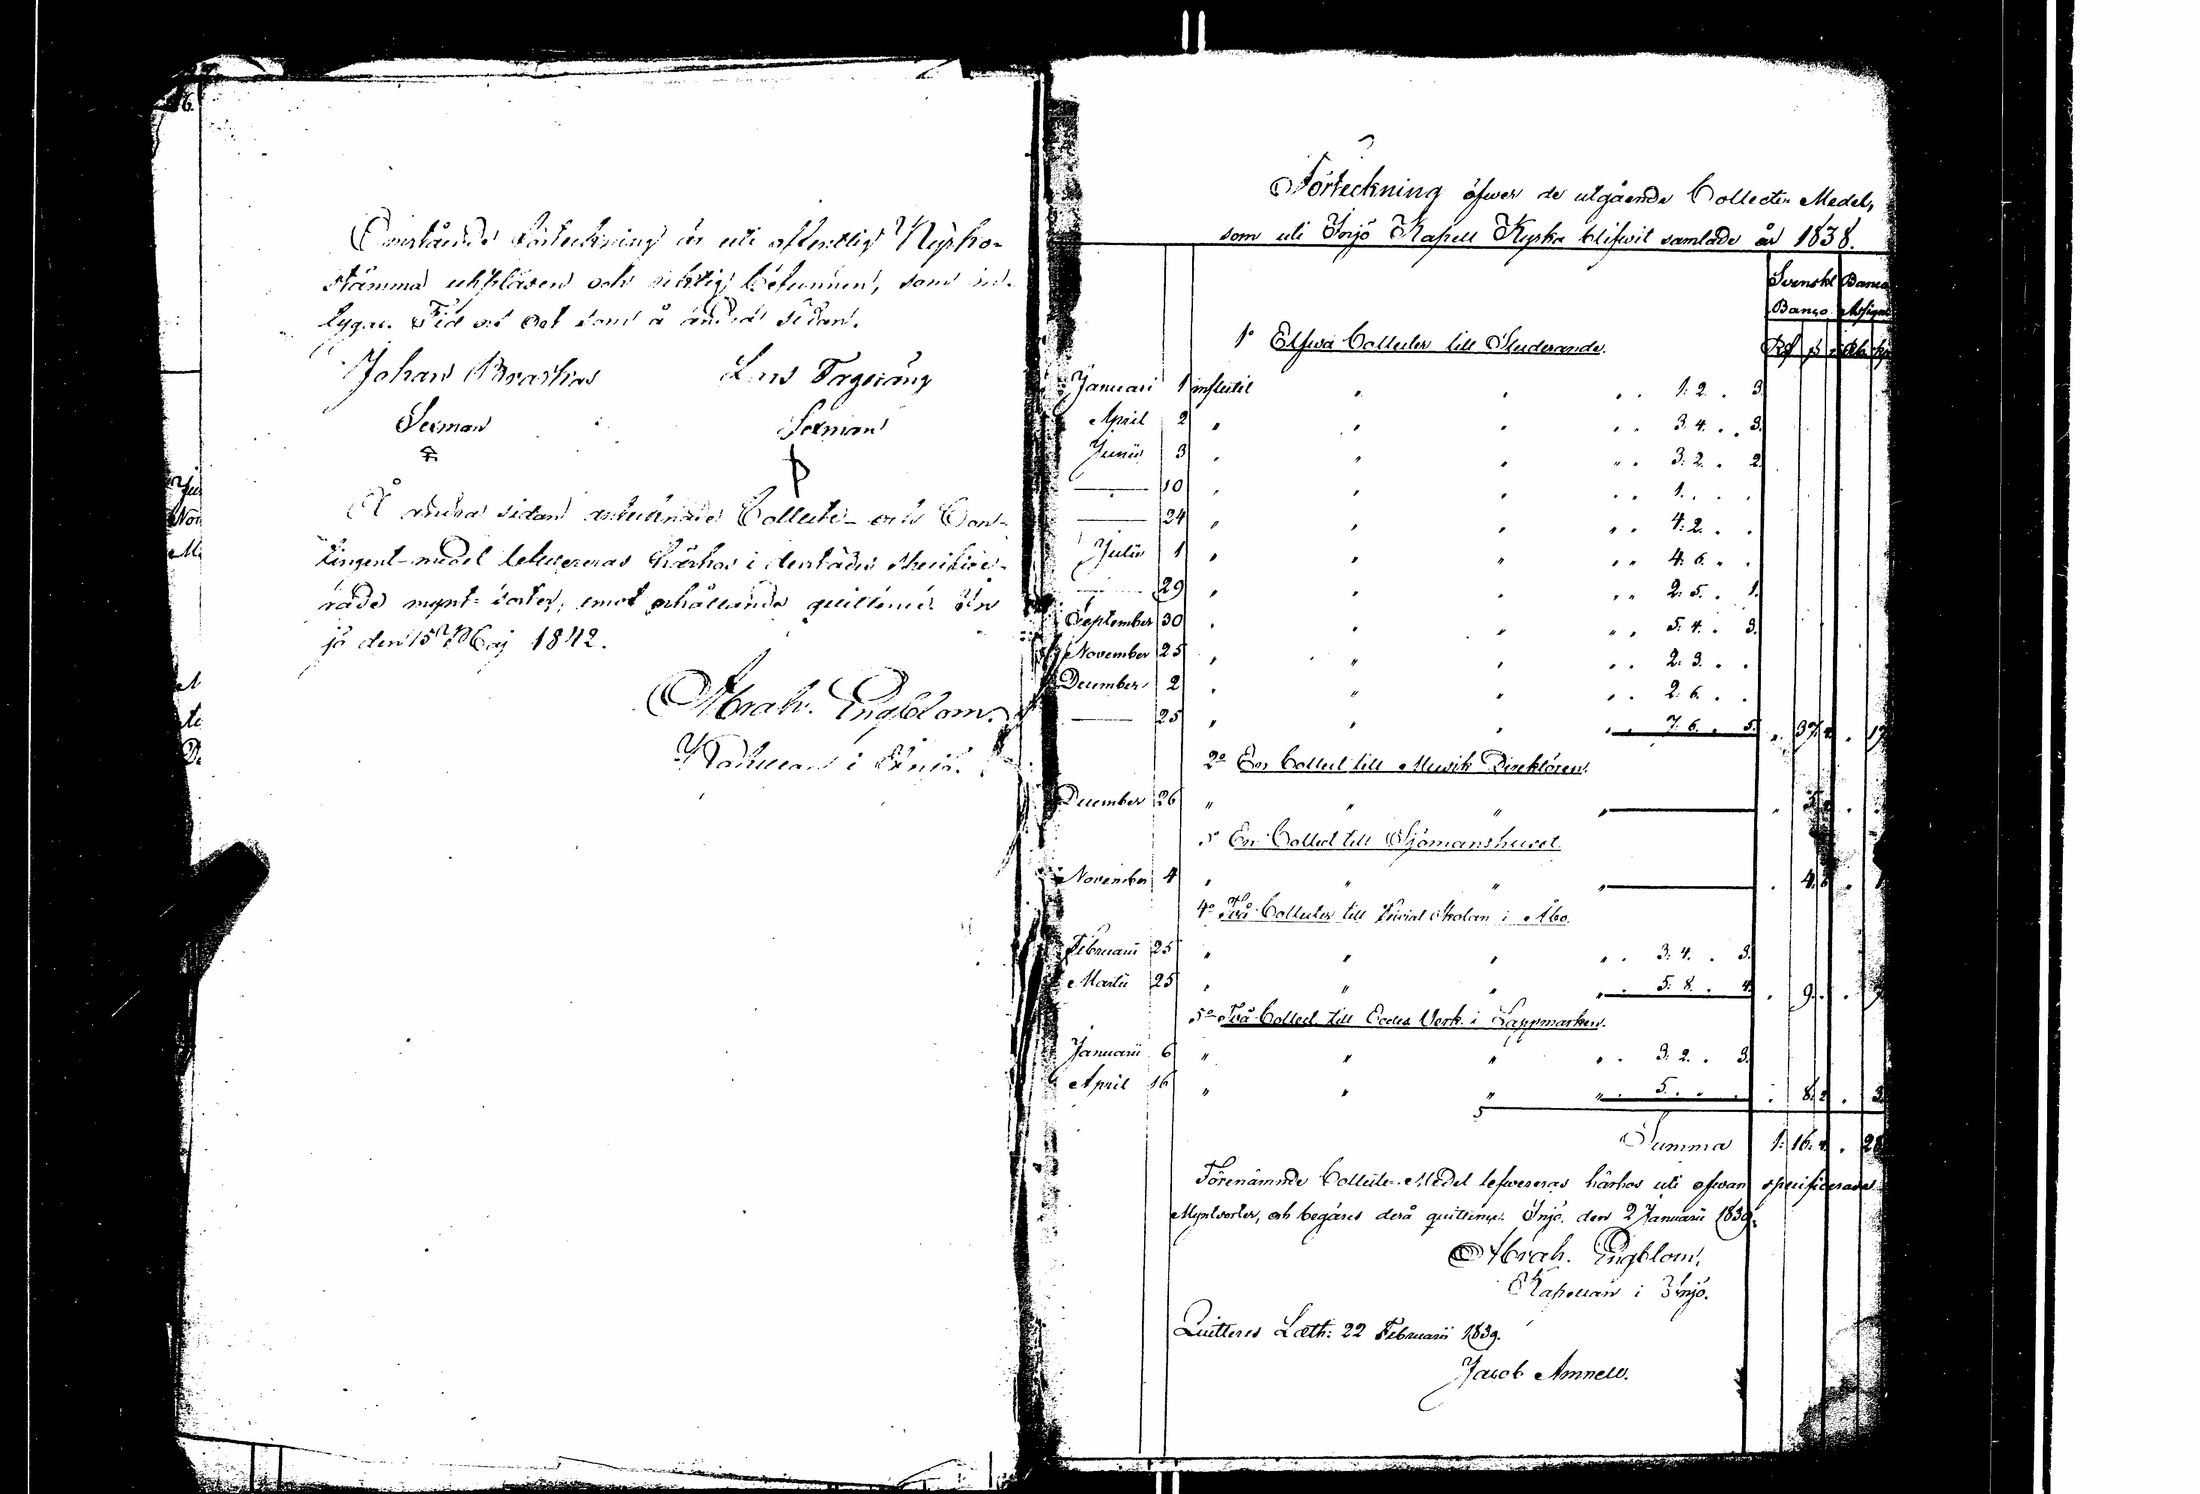 Omstående förteckning är uti offentlig Kyrko-
stämma uppläsen och riktig befunnen, som in-
tygar. Tid och Ort som å andra sidan.
Johan
Lars
Sexman
Sexman
Å andra sidan antecknade Collecte- och Con-
tingent-medel levereras härhos i derstädes specifice-
rade mynt-sorter, emot erhållande quittence. Ini-
jö den 15 Maj 1842.
Abrah. Engblom.
Kapellan i Iniö.
Förteckning öfwer de utgående Collecte-Medel,
som uti Injö Kapell Kyrka blifwit samlade år 1838.
Svenskt Banco
Banco Assign.
1o Elfwa Collecter till Studerande.
Januari 1 influtit " " " " 1. 2. " 3.
April 2 " " " " " 3. 4. " " 3.
Junii 3 " " " " " 3. 2. " 2.
— 10 " " " " " 1. " " "
— 24 " " " " " 4. 2. " "
Julii 1 " " " " " 4. 6. " "
— 29 " " " " " 2. 5. " 1.
September 30 " " " " " 5. 4. " 3.
November 25 " " " " " 2. 3. " "
December 2 " " " " " 2. 6. " "
— 25 " " " " " 7. 6. " 5. " 37.
2o En Collect till Musik Direktören.
December 26 " " " "
En Collect till Sjömanshuset.
November 4 " " " " " 4.
4o Två Collecter till Trivial Skolan i Åbo.
Februarii 25 " " " " " 3. 4. " 3.
Martii 25 " " " " " 5. 8. " 4. " 9.
5o Två Collect. till Eccles. Verk. i Lappmarken.
Januarii 6 " " " " " 3. 2. " 3.
April 16 " " " " " 5. " " " " 8.
Summa 1. 16.
Förenämnde Collecte-Medel lefwereras härhos uti ofwan specificerade
Myntsorter, och begäres derå quittence. Injö den 2 Januarii 1839.
Abrah. Engblom,
Kapellan i Injö.
Quitteres Læth: 22 Februarii 1839.
Jacob Amnell.